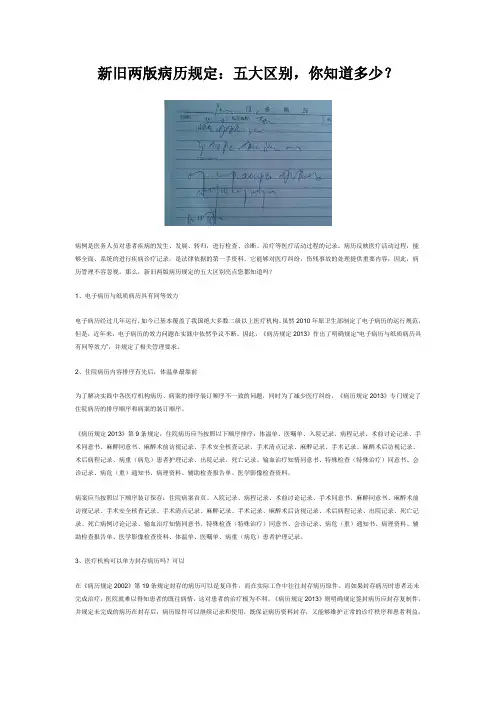 新旧两版病历规定：五大区别，你知道多少？
病例是医务人员对患者疾病的发生、发展、转归，进行检查、诊断、治疗等医疗活动过程的记录。病历反映医疗活动过程，能
够全面、系统的进行疾病诊疗记录，是法律依据的第一手资料，它能够对医疗纠纷，伤残事故的处理提供重要内容，因此，病
历管理不容忽视。那么，新旧两版病历规定的五大区别亮点您都知道吗？
1、电子病历与纸质病历具有同等效力
电子病历经过几年运行，如今已基本覆盖了我国绝大多数二级以上医疗机构。虽然2010年原卫生部制定了电子病历的运行规范，
但是，近年来，电子病历的效力问题在实践中依然争议不断。因此，《病历规定2013》作出了明确规定“电子病历与纸质病历具
有同等效力”，并规定了相关管理要求。
2、住院病历内容排序有先后，体温单最靠前
为了解决实践中各医疗机构病历、病案的排序装订顺序不一致的问题，同时为了减少医疗纠纷，《病历规定2013》专门规定了
住院病历的排序顺序和病案的装订顺序。
《病历规定2013》第9条规定，住院病历应当按照以下顺序排序：体温单、医嘱单、入院记录、病程记录、术前讨论记录、手
术同意书、麻醉同意书、麻醉术前访视记录、手术安全核查记录、手术清点记录、麻醉记录、手术记录、麻醉术后访视记录、
术后病程记录、病重（病危）患者护理记录、出院记录、死亡记录、输血治疗知情同意书、特殊检查（特殊治疗）同意书、会
诊记录、病危（重）通知书、病理资料、辅助检查报告单、医学影像检查资料。
病案应当按照以下顺序装订保存：住院病案首页、入院记录、病程记录、术前讨论记录、手术同意书、麻醉同意书、麻醉术前
访视记录、手术安全核查记录、手术清点记录、麻醉记录、手术记录、麻醉术后访视记录、术后病程记录、出院记录、死亡记
录、死亡病例讨论记录、输血治疗知情同意书、特殊检查（特殊治疗）同意书、会诊记录、病危（重）通知书、病理资料、辅
助检查报告单、医学影像检查资料、体温单、医嘱单、病重（病危）患者护理记录。
3、医疗机构可以单方封存病历吗？可以
在《病历规定2002》第19条规定封存的病历可以是复印件，而在实际工作中往往封存病历原件。而如果封存病历时患者还未
完成治疗，医院就难以得知患者的既往病情，这对患者的治疗极为不利。《病历规定2013》则明确规定签封病历应封存复制件，
并规定未完成的病历在封存后，病历原件可以继续记录和使用，既保证病历资料封存，又能够维护正常的诊疗秩序和患者利益，